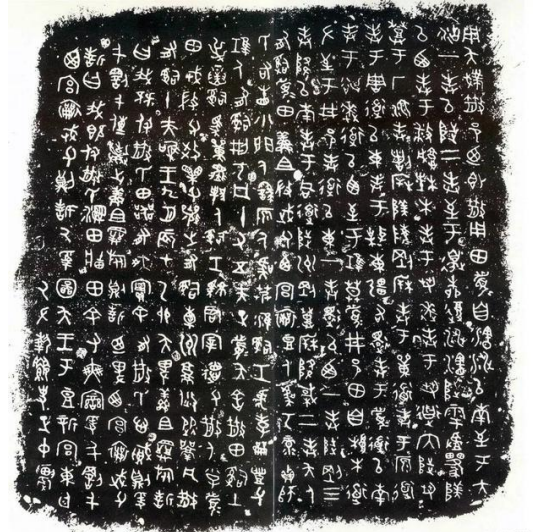 用夨𢦏散邑乃即散用田眉自瀗涉以南至于大
沽一奉以陟二奉至于邊柳復涉瀗陟雩
以西奉于播城楮木奉于芻逨奉于芻道内陟芻
登于厂湶奉諸陵剛奉于道奉于原道
奉于周道以東奉于東疆右還奉于眉道以南
奉于逨道以西至于莫眉井邑田自桹木道
左至于井邑奉道以東一奉還以西一奉陟剛三
奉降以南奉于同道陟州剛登降棫二奉夨人
有𤔲眉田鮮且微武父西宮襄豆人虞丂彔貞師
氏右眚小門人繇原人虞艿淮𤔲工虎孛豐父
人有𤔲刑丂凡十又五夫正眉夨舍散田𤔲土
屰𤔲馬單邦人𤔲工君宰德父散人小子眉
田戎微父效父襄之有𤔲橐州焂從凡散
有𤔲十夫唯王九月辰才乙卯夨卑鮮且旅誓
曰我既付散氏田器有爽實余有散氏心賊則爰
千罰千傳棄之鮮且旅則誓乃卑西宮襄武父
誓曰我既付散氏濕田田余又爽爰千罰千
西宮襄武父則誓厥受圖夨王于豆新宮東廷
厥左執史正中農